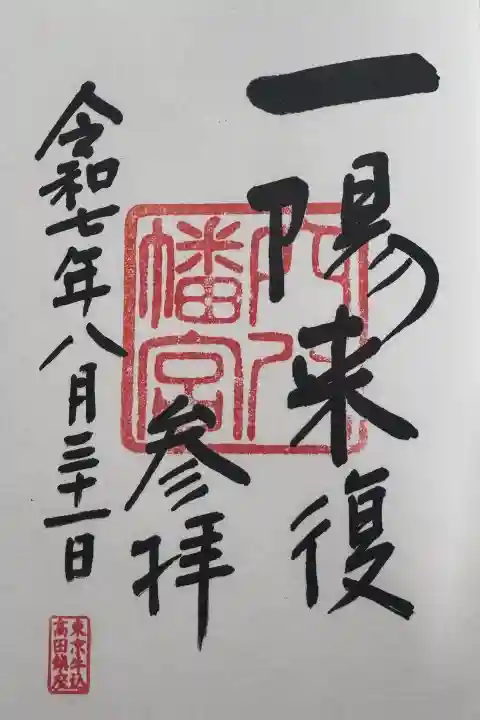 一陽来復
穴八
幡宮
参拝
令和七年八月三十一日
東京牛込
高田鎮座